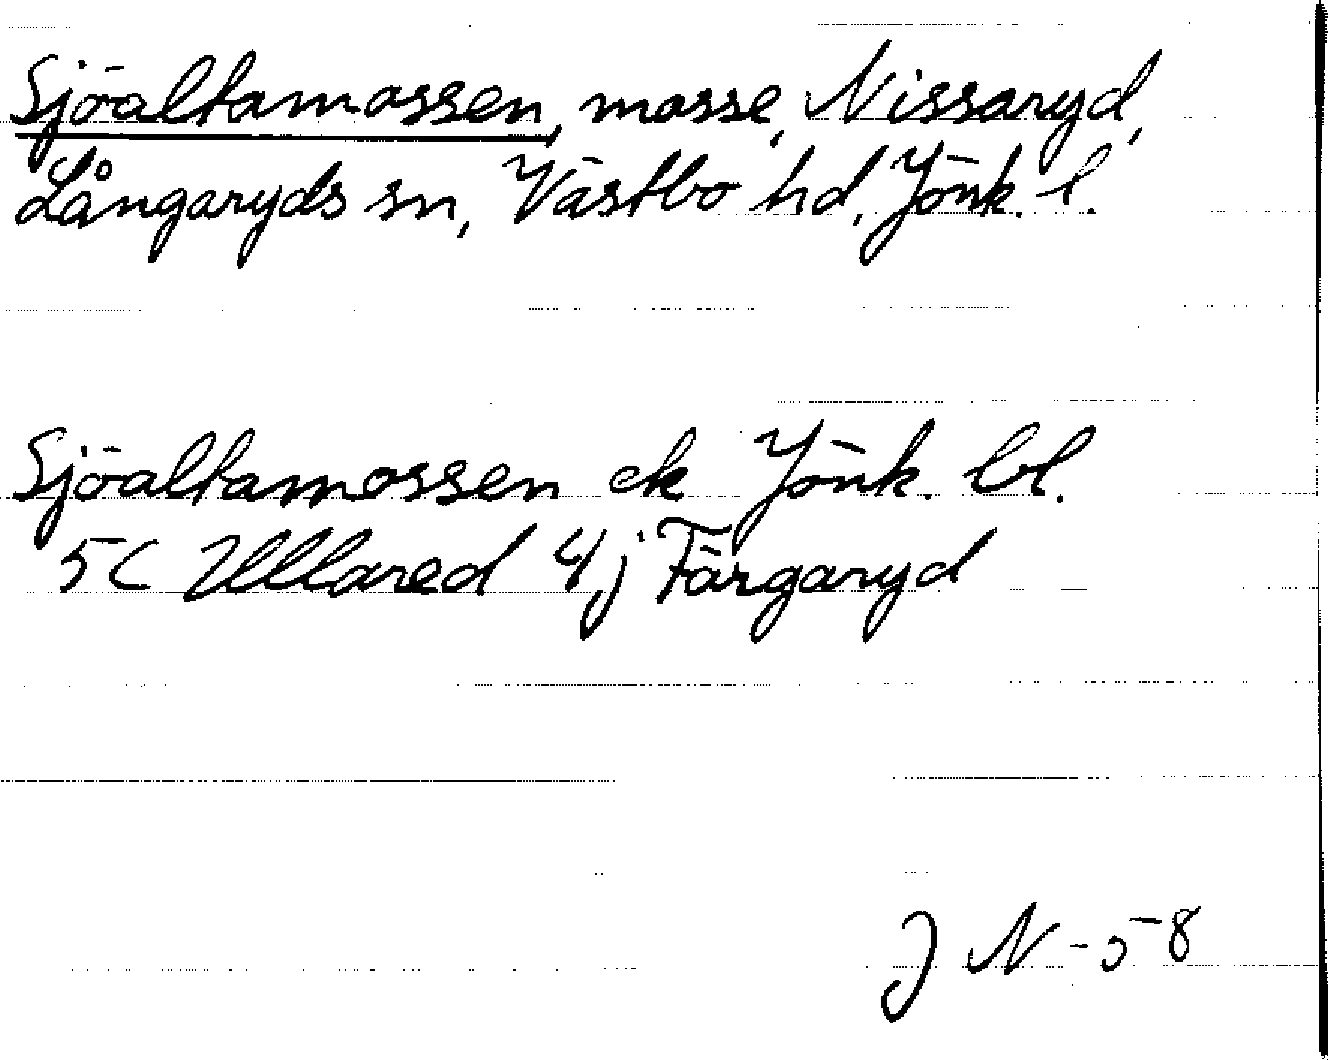 Sjöaltamossen, mosse, Nissaryd,
Långaryds sn, Västbo hd, Jönk. l.
Sjöaltamossen ek Jönk. bl.
5C Ullared 4j Färgaryd
J N -58